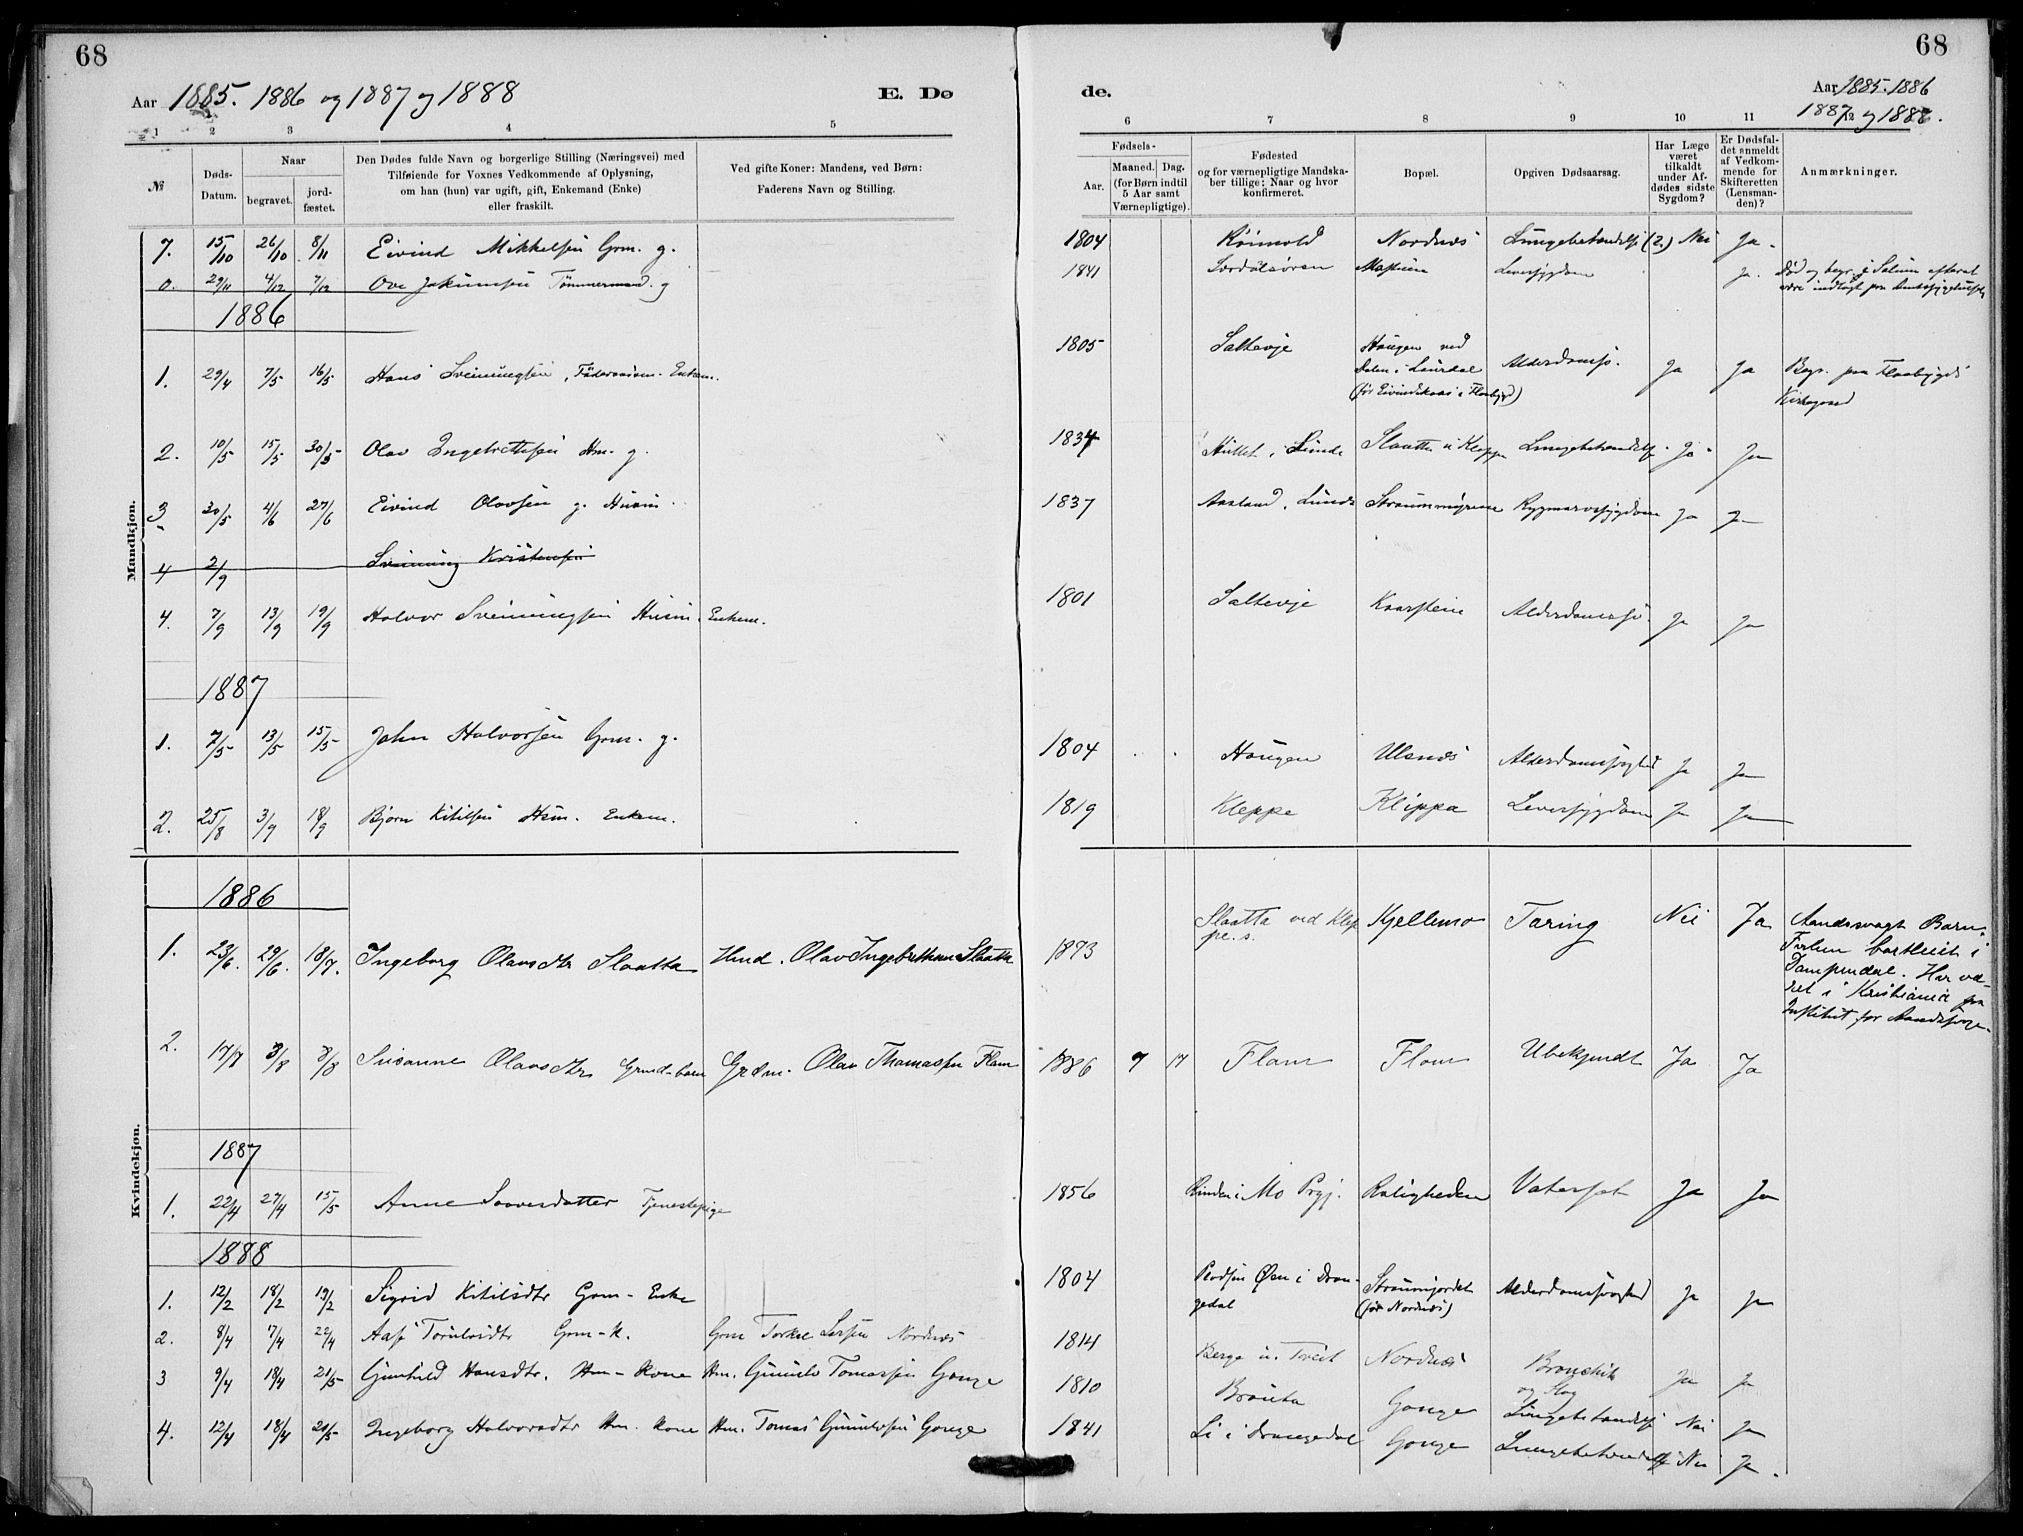 68
Aar 1885. 1886 og 1887 og 1888
E. Dø
1 2 3 4 5
№
Døds-
Datum.
Naar
begravet.
jord-
fæstet.
Den Dødes fulde Navn og borgerlige Stilling (Næringsvei) med
Tilføiende for Voxnes Vedkommende af Oplysning,
om han (hun) var ugift, gift, Enkemand (Enke)
eller fraskilt.
Ved gifte Koner: Mandens, ved Børn:
Faderens Navn og Stilling.
Mandkjøn.
7. 15/10 26/10 8/11 Eivind Mikkelsen Grm. g.
0. 29/11 4/12 7/12 Ove Jakumsen Tømmermand. g
1886
1. 29/4 7/5 16/5 Hans Sveinungsen, Enkem.
2. 10/5 15/5 30/5 Olav Ingebretsen Hm. g.
3 30/5 4/6 27/6 Eivind Olavsen g. Husm.
4 2/9 Sveinung Kristensen
4. 7/9 13/9 19/9 Halvor Sveinungsen Husm. Enkem.
1887
1. 7/5 13/5 15/5 John Halvorsen Grm. g.
2. 25/8 3/9 18/9 Bjørn Kitilsen Hsm. Enkem.
Kvindekjøn.
1886
1. 23/6. 29/6. 18/7. Ingeborg Olavsdtr Slaatta Hmd. Olav Ingebrethsen Slaatta
2. 17/7 3/8 8/8 Susanne Olavsdtr Grmd-barn Grdm. Olav Thomassen Flom
1887
1. 22/4 27/4 15/5 Anne Saavesdatter Tjenestepige
1888
1. 12/2 18/2 19/2 Sigrid Kitilsdtr Grm- Enke
2. 8/4 7/4 22/4 Aase Torulvsdtr Grm-K. Grm Torkel Nordnes
3 9/4 18/4 21/5 Gunhild Hansdtr. Hm- Kone Hm. Gunulv Tomassen Gonge
4. 12/4 18/4 20/5 Ingeborg Halvorsdtr Hm. Kone Hm. Tomas Gunulvsen Gonge
68
de.
Aar 1885. 1886
1887 og 1888.
6 7 8 9 10 11 12
Fødsels-
Aar.
Maaned. Dag.
(for Børn indtil
5 Aar samt
Værnepligtige).
Fødested
og for værnepligtige Mandska-
ber tillige: Naar og hvor
konfirmeret.
Bopæl.
Opgiven Dødsaarsag.
Har Læge
været
tilkaldt
under Af-
dødes sidste
Sygdom?
Er Dødsfal-
det anmeldt
af Vedkom-
mende for
Skifteretten
(Lensman-
den)?
Anmærkninger.
1804 Nordnæs Lungebetændelse (2.) Nei Ja.
1841 Leversygdom Ja. Død og begr. i
1805 Saltevje Haugen ved
Alderdomss. Ja Ja Begr. paa Flaabygds
Kirkegaard
1834 i Lunde Slaatta u. Kleppe Lungebetændelse. Ja Ja
1837 Aasland, Lunde Straummyrene Rygmarvssygdom Ja Ja
1801 Saltevje Kaasstein Alderdomss. Ja Ja
1804 Haugen Ulsnes Alderdomssvaghed Ja Ja
1819 Kleppe Kleppa Leversygdom Ja Ja
1873 Slaatta ved Klep-
pe. s. Kjellemo Tæring Nei Ja Aandssvagt Barn.
i Kristiania paa
Institut for
1886 7 17 Flom Flom Ubekjendt Ja Ja
1856 i Mo Prgj. Roligheden Vatersot Ja Ja
1804 Øen i Dran-
gedal Straumjordet
(før Nordnæs) Alderdomssvaghed Ja Ja
1814 Berge u. Treit Nordnæs Bronchit
og Slag Ja Ja
1810 Brauta Gonge Lungebetændelse Nei Ja
1841 Li i Drangedal Gonge Lungebetændelse Nei Ja.